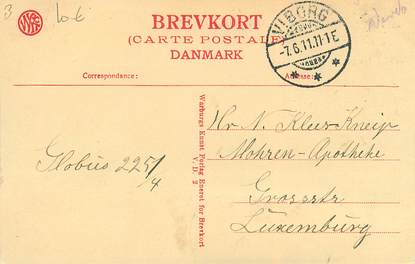 3
BREVKORT
(CARTE POSTALE)
DANMARK
VIBORG
-7.6.11.11-1E
Correspondance:
Adresse:
Hr. N. Klees-Kneip
Mohren-Apotheke
Grossstr
Luxemburg
Globus 2251/4
Warburgs Kunst Forlag Eneret for Brevkort
V. D. 2